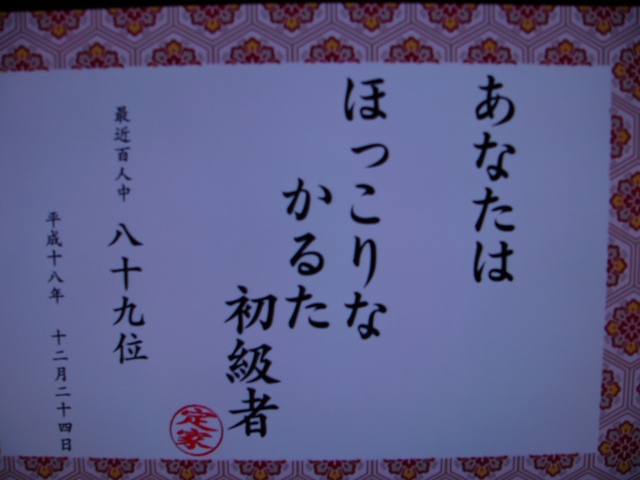 あなたは
ほっこりな
かるた
初級者
定家
最近百人中 八十九位
平成十八年 十二月二十四日